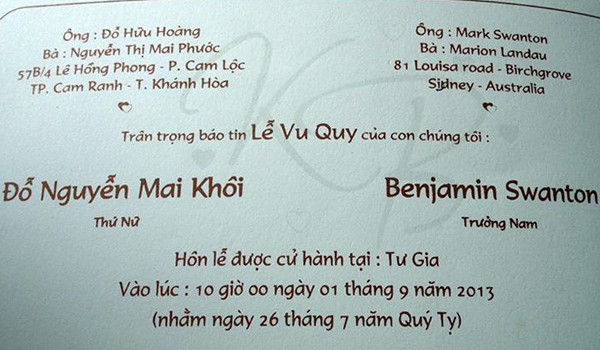 Ông : Đỗ Hữu Hoàng
Bà : Nguyễn Thị Mai Phước
57B/4 Lê Hồng Phong - P. Cam Lộc
TP. Cam Ranh - T. Khánh Hòa
Ông : Mark Swanton
Bà : Marion Landau
81 Louisa road - Birchgrove
Sidney - Australia
Trân trọng báo tin Lễ Vu Quy của con chúng tôi :
Đỗ Nguyễn Mai Khôi
Thứ Nữ
Benjamin Swanton
Trưởng Nam
Hôn lễ được cử hành tại : Tư Gia
Vào lúc : 10 giờ 00 ngày 01 tháng 9 năm 2013
(nhằm ngày 26 tháng 7 năm Quý Tỵ)